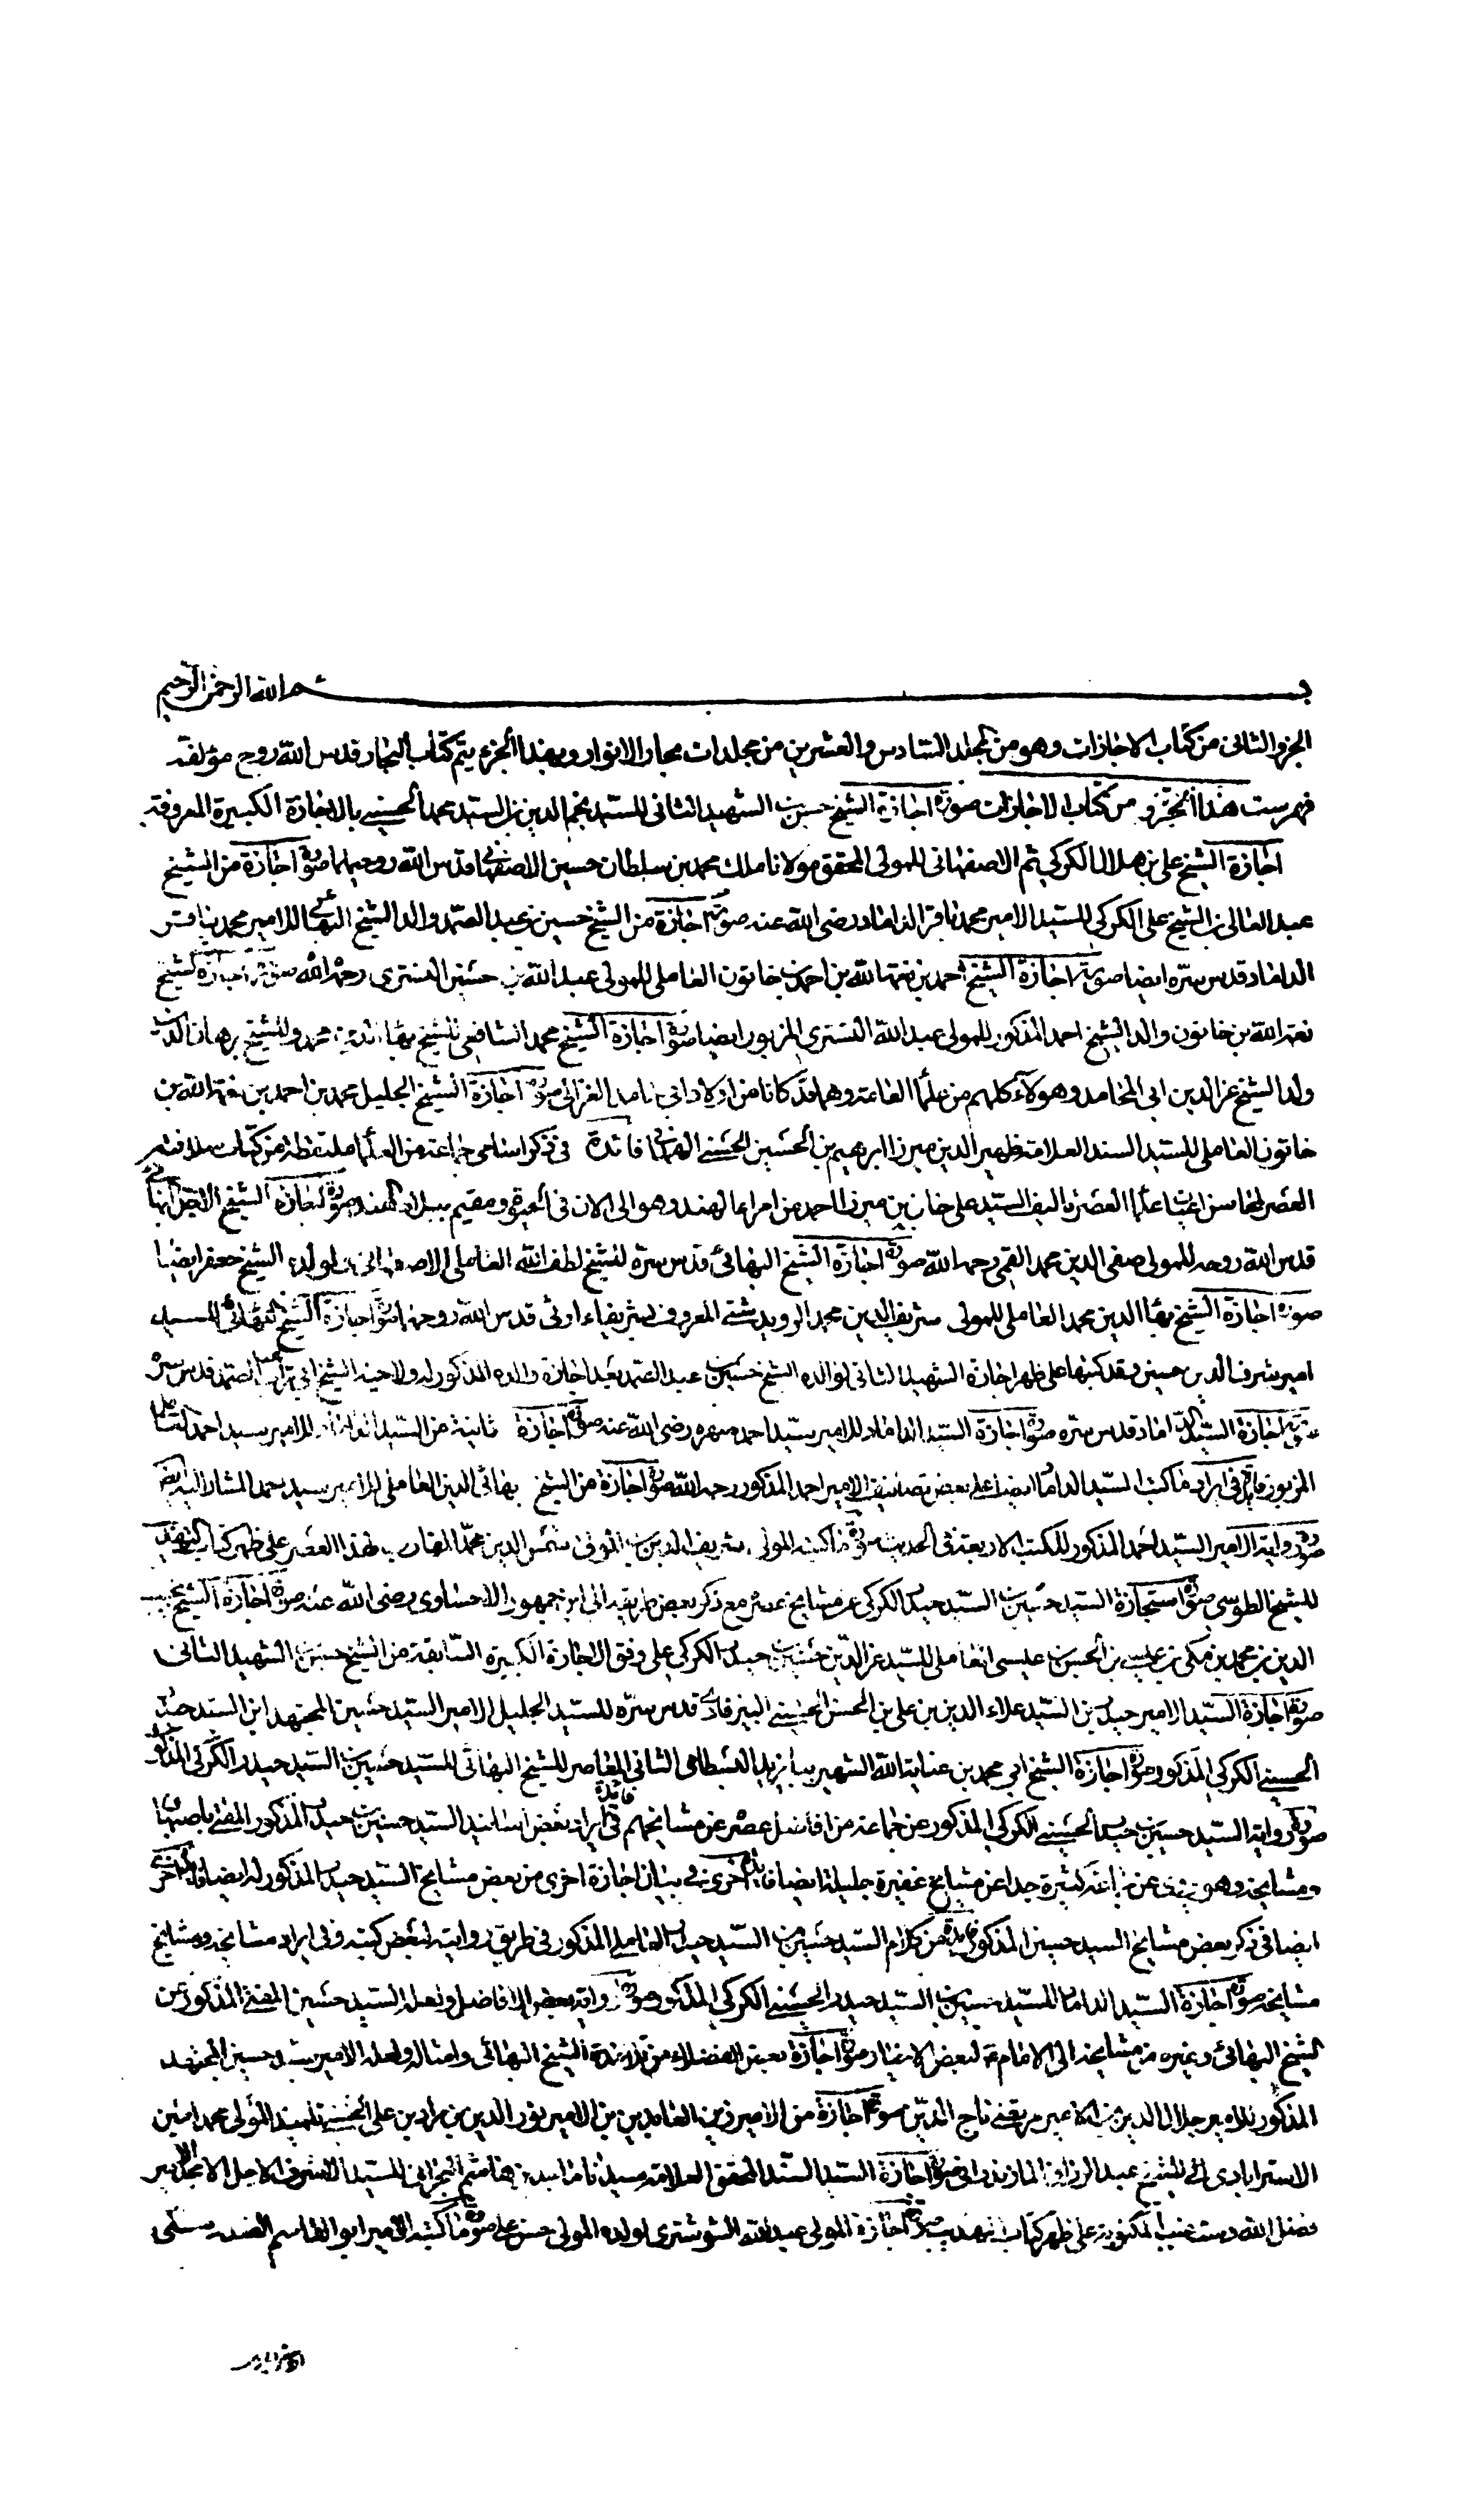 بسم الله الرحمن الرحيم
الجزو الثانى من كتاب الاجازات وهو من المجلد السادس والعشرين من مجلدات بحار الانوار وبهذا الجزء يتم كتاب البحار قدس الله روح مؤلفه
فهرست هذا الجزو من كتاب الاجازات صورة اجازة الشيخ حسن بن الشهيد الثانى للسيد نجم الدين بن السيد محمد الحسينى بالاجازة الكبيرة المعروفة
اجازة الشيخ على بن هلال الكركى ثم الاصفهانى للمولى المحقق مولانا ملك محمد بن سلطان حسين الاصفهانى قدس الله روحيهما صورة اجازة من الشيخ
عبد العالى بن الشيخ على الكركى للسيد الامير محمد باقر الداماد رضى الله عنه صورة اجازة من الشيخ حسين بن عبد الصمد والد الشيخ البهائى للامير محمد باقر
الداماد قدس سره ايضا صورة اجازة الشيخ احمد بن نعمة الله بن احمد بن خاتون العاملى للمولى عبد الله بن حسين التسترى رحمه الله صورة اجازة الشيخ
نعمة الله بن خاتون والد الشيخ احمد المذكور للمولى عبد الله التسترى المزبور ايضا صورة اجازة الشيخ محمد الشافعى للشيخ بهاء الدين محمد وللشيخ برهان الدين
ولد الشيخ عز الدين ابى المحامد وهولاء كلهم من علماء العامة وهما قد كانا من اولاد ابى حامد الغزالى صورة اجازة الشيخ الجليل محمد بن احمد بن نعمة الله بن
خاتون العاملى للسيد السند العلامة ظهير الدين ميرزا ابرهيم بن الحسين الحسنى الهمدانى فائدة فى ذكر اسامى جماعة من العلماء ملتقطة من كتاب سلافة
العصر لمحاسن اعيان علماء العصر تاليف السيد على خان بن ميرزا احمد من امراء الهند وهو الى الان فى الحيوة ومقيم ببلاد الهند صورة اجازة الشيخ الاجل البهائى
قدس الله روحه للمولى صفى الدين محمد القمى رحمه الله صورة اجازة الشيخ البهائى قدس سره للشيخ لطف الله العاملى الاصفهانى ولولده الشيخ جعفر ايضا
صورة اجازة الشيخ بهاء الدين محمد العاملى للمولى شريف الدين محمد الرويدشتى المعروف بشريفاء اولى قدس الله روحهما صورة اجازة الشيخ البهائى للسيد
امير شرف الدين حسين وقد كتبها على ظهر اجازة الشهيد الثانى لوالده الشيخ حسين بن عبد الصمد بعد اجازة والده المذكور له ولاخيه الشيخ ابى تراب عبد الصمد قدس سره
صورة اجازة السيد الداماد قدس سره صورة اجازة السيد الداماد للامير سيد احمد صهره رضى الله عنه صورة اجازة ثانية من السيد الداماد للامير سيد احمد العاملى
المزبور فائدة فى ايراد ما كتبه السيد الداماد ايضا على بعض تصانيف الامير احمد المذكور رحمه الله صورة اجازة من الشيخ بهائى الدين العاملى للامير سيد احمد المشار اليه ايضا
صورة رواية الامير السيد احمد المذكور للكتب الاربعة فى الحديث صورة ما كتبه المولى شريف الدين بن المولى شمس الدين محمد المقارب لهذا العصر على ظهر كتاب التهذيب
للشيخ الطوسى صورة استجازة السيد حسين بن السيد حيدر الكركى عن مشايخ عصره مع ذكر بعض طريقه الى ابن جمهور الاحساوى رضى الله عنه صورة اجازة الشيخ نجيب
الدين بن محمد بن مكى بن عيسى بن الحسن بن عيسى العاملى للسيد عز الدين حسين بن حيدر الكركى على وفق الاجازة الكبيرة السابقة من الشيخ حسن بن الشهيد الثانى
صورة اجازة السيد الامير حيدر بن السيد علاء الدين بن على بن الحسن الحسينى البيروى قدس سره للسيد الجليل الامير السيد حسين المجتهد ابن السيد حيدر
الحسينى الكركى المذكور صورة اجازة الشيخ ابى محمد بن عناية الله الشهير ببايزيد البسطامى الثانى المعاصر للشيخ البهائى للسيد حسين بن السيد حيدر الكركى المذكور
صورة رواية السيد حسين بن حيدر الحسينى الكركى المذكور عن جماعة من افاضل عصره عن مشايخهم فائدة فى ايراد بعض اسانيد السيد حسين بن حيدر المذكور المفتى باصبهان
ومشايخه وهو يروى عن جماعة كثيرة جدا عن مشايخ غفيرة جليلة ايضا فائدة اخرى فى بيان اجازة اخرى من بعض مشايخ السيد حيدر المذكور له ايضا فائدة اخرى
ايضا فى ذكر بعض مشايخ السيد حسين المذكور فائدة من كلام السيد حسين بن السيد حيدر العاملى المذكور فى طريق روايته لبعض كتبه وفى ايراد مشايخه ومشايخ
مشايخه صورة اجازة السيد الداماد للسيد حسين بن السيد حيدر الحسينى الكركى المذكور صورة رواية بعض الافاضل ولعله السيد حسين المفتى المذكور عن
الشيخ البهائى وغيره من مشايخه الى الامامة لبعض الاخيار صورة اجازة بعض الفضلاء من تلامذة الشيخ البهائى وامثاله ولعله الامير سيد حسين المجتهد
المذكور للامير جلال الدين بن الامير مرتضى تاج الدين صورة اجازة من الامير زين العابدين بن الامير نور الدين بن مراد بن على الحسينى تلميذ المولى محمد امين
الاسترابادى الى الشيخ عبد الرزاق المازندرانى صورة اجازة السيد السند المحقق العلامة سيدنا ماجد بن هاشم البحرانى للسيد الاشرف الاجل الامجد الامير
فضل الله دست غيب المكتوبة على ظهر كتاب التهذيب صورة اجازة المولى عبد الله الشوشترى لولده المولى حسن على صورة ما كتبه الامير ابو القاسم الفندرسكى